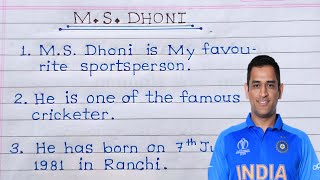 M.S. DHONI
1. M.S. Dhoni is My favou-
rite sportsperson.
2. He is one of the famous
cricketer.
3. He has born on 7th
1981 in Ranchi.
INDIA